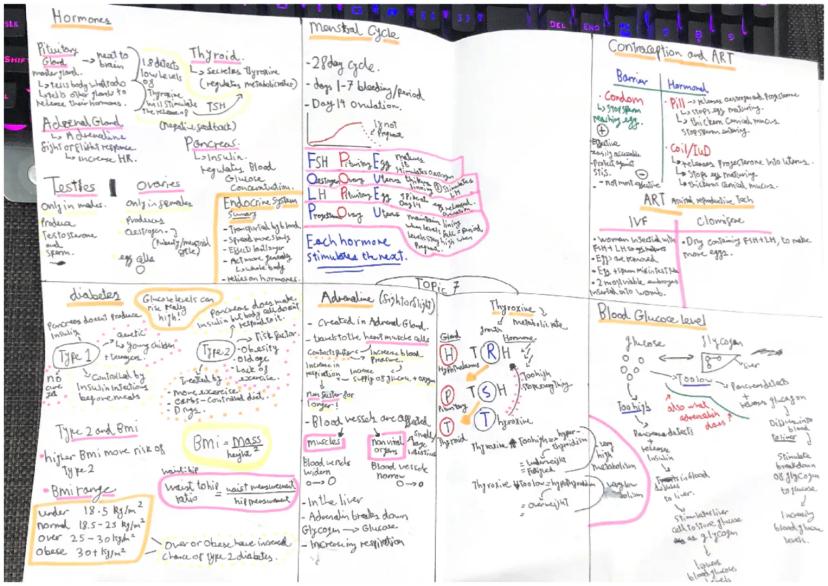 Hormones
Pituitary
Gland → next to
brain
master gland.
↳ tells body what to do
↳ tells other glands to
release their hormones.
Adrenal Gland
↳ Adrenaline
fight or flight response
↳ increase HR.
Testies
Only in males.
Produce
Testosterone
and
sperm.
Ovaries
Only in females
Produces
Oestrogen.
egg cells
low levels
of
Thyroxine
will stimulate
the release of
TSH
(negative feedback)
Thyroid.
↳ secretes Thyroxine
(regulates metabolic rate)
Pancreas
↳ Insulin.
regulates Blood
Glucose
Concentration.
Endocrine System
Summary
- Transported by blood
- relies on hormones.
Menstral Cycle
- 28 day cycle.
- days 1-7 bleeding/period
- Day 14 ovulation.
FSH Pituitary Egg
Oestrogen Ovary Uterus
LH Pituitary Egg
Progesterone Ovary Uterus
Each hormone
stimulates the next.
Contraception and ART
Barrier
• Condom
↳ stop sperm
reaching egg.
+
effective
easily accessible
Protects against
STIs.
-
- not most effective
Hormonal
Pill
↳ stops egg maturing.
↳ thicken cervical mucus.
stop sperm entering.
Coil/IUD
↳ releases Progesterone into uterus.
↳ stops egg maturing
↳ thickens cervical mucus.
ART
IVF
FSH + LH
• Eggs are removed.
Clomifene
• Drug containing FSH + LH, to make
more eggs.
Topic 7
diabetes
Glucose levels can
rise really
high!
Pancreas doesnt produce
insulin
Type 1
↳ young children
+ teenagers
Controlled by
Insulin injections
before meals
Pancreas does make
insulin but body cells dont
respond to it.
Type 2
Risk factor
- Obesity
- Old age
- Lack of
exercise.
Treated by
- more exercise
- carbs - controlled diet.
- Drugs.
Type 2 and Bmi
• higher Bmi more risk of
Type 2
• Bmi range
under 18.5 kg/m²
normal 18.5 - 25 kg/m²
over 25 - 30 kg/m²
obese 30+ kg/m²
Bmi = mass
height²
waist to hip
ratio = waist measurement
hip measurement
Over or Obese have increased
chance of type 2 diabetes.
Adrenaline (fight or flight)
- Created in Adrenal Gland.
- travels to the heart muscle cells
increase blood
pressure
increase in
respiration
supply of glucose + oxygen
- Blood vessels are affected
muscles
Blood vessels
widen
non vital
organs
Blood vessels
narrow
- In the liver
- Adrenalin breaks down
Glycogen → Glucose
- increasing respiration
Thyroxine
↳ metabolic rate
growth
Gland
Hormone
H TRH
Hypothalamus
P TSH
Pituitary
T T
Thyroid
Too high
stops everything
Thyroxine
Too high = hyper
thyroidism
= underweight
Thyroxine
Too low = hypothyroidism
= overweight
very
high
metabolism
very low
metabolism
Blood Glucose level
glucose
glycogen
liver
Too low
Too high
also what
adrenalin
does
↳ Pancreas detects
+
release
insulin
Stimulates liver
cell to store glucose
as glycogen
lowers
blood glucose
levels
Pancreas detects
+ releases glucagon
Diffuses into
blood
to liver.
Stimulate
breakdown
of glycogen
to glucose
Increasing
blood glucose
levels.